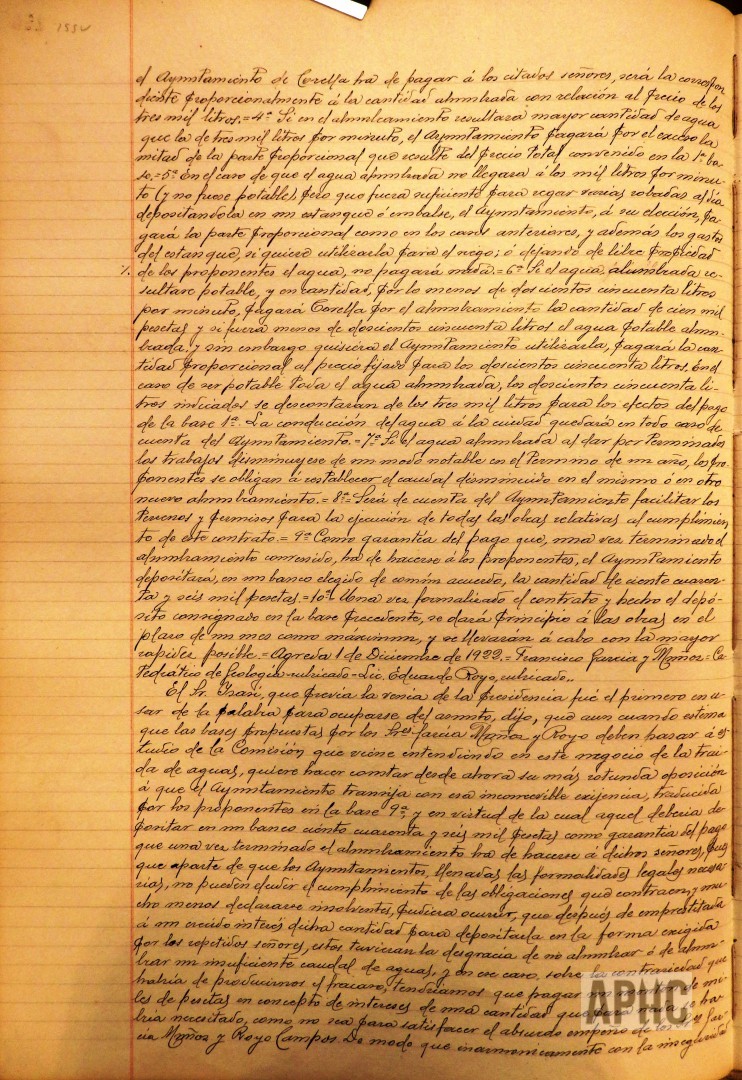 1552
el Ayuntamiento de Corella ha de pagar á los citados señores, será la correspon
diente proporcionalmente á la cantidad alumbrada con relación al precio de los
tres mil litros.=4ª Si en el alumbramiento resultara mayor cantidad de agua
que la de tres mil litros por minuto, el Ayuntamiento pagará por el exceso la
mitad de la parte proporcional que resulte del precio total convenido en la 1ª ba-
se.=5ª En el caso de que el agua alumbrada no llegara á los mil litros por minu-
to (y no fuese potable), pero que fuera suficiente para regar varias robadas al día
depositandola en un estanque ó embalse, el Ayuntamiento, á su elección, pa-
gará la parte proporcional como en los casos anteriores, y además los gastos
del estanque, si quiere utilizarla para el riego; ó dejando de libre propiedad
de los proponentes el agua, no pagará nada.=6ª Si el agua alumbrada re-
sultare potable, y en cantidad, por lo menos de doscientos cincuenta litros
por minuto, pagará Corella por el alumbramiento la cantidad de cien mil
pesetas y si fuera menos de doscientos cincuenta litros el agua potable alum-
brada, y sin embargo quisiera el Ayuntamiento utilizarla, pagará la can-
tidad proporcional al precio fijado para los doscientos cincuenta litros. En el
caso de ser potable toda el agua alumbrada, los doscientos cincuenta li-
tros indicados se descontaran de los tres mil litros para los efectos del pago
de la base 1ª. La conducción del agua á la ciudad quedará en todo caso de
cuenta del Ayuntamiento.=7ª Si el agua alumbrada al dar por terminados
los trabajos disminuyese de un modo notable en el termino de un año, los pro-
ponentes se obligan á restablecer el caudal disminuido en el mismo ó en otro
nuevo alumbramiento.=8ª=Será de cuenta del Ayuntamiento facilitar los
terrenos y permisos para la ejecución de todas las obras relativas al cumplimien
to de este contrato.=9ª Como garantía del pago que, una vez terminado el
alumbramiento convenido, ha de hacerse á los proponentes, el Ayuntamiento
depositará, en un banco elegido de común acuerdo, la cantidad de ciento cuaren-
ta y seis mil pesetas.=10ª Una vez formalizado el contrato y hecho el depó-
sito consignado en la base precedente, se dará principio á las obras en el
plazo de un mes como máximum, y se llevarán á cabo con la mayor
rapidez posible.=Agreda 1 de Diciembre de 1922.=Francisco Garcia y Muñoz=Ca
tedrático de Geologia=rubricado=Lic. Eduardo Royo, rubricado.,
El Sr. Isasi, que previa la venia de la Presidencia fué el primero en u-
sar de la palabra para ocuparse del asunto, dijo, que aun cuando estima
que las bases propuestas por los Sres Garcia Muñoz y Royo deben pasar á es-
tudio de la Comisión que viene entendiendo en este negocio de la trai-
da de aguas, quiere hacer constar desde ahora su más rotunda oposición
á que el Ayuntamiento transija con esa inconcebible exijencia, traducida
por los proponentes en la base 9ª, y en virtud de la cual aquel deberia de
positar en un banco ciento cuarenta y seis mil pesetas como garantía del pago
que una vez terminado el alumbramiento ha de hacerse á dichos señores, pues
que aparte de que los Ayuntamientos, llenadas las formalidades legales necesa-
rias, no pueden eludir el cumplimiento de las obligaciones que contraen, y mu-
cho menos declararse insolventes, pudiera ocurrir, que después de emprestitada
á un crecido interés dicha cantidad para depositarla en la forma exigida
por los repetidos señores, estos tuvieran la desgracia de no alumbrar ó de alum-
brar un insuficiente caudal de aguas, y en ese caso, sobre la contrariedad que
habría de producirnos el fracaso, tendriamos que pagar mi-
les de pesetas en concepto de intereses de una cantidad que para nada se ha-
bria necesitado, como no sea para satisfacer el absurdo empeño de los Gar-
cia Muñoz y Royo Campos. De modo que inarmonicamente con la inseguridad
APHC